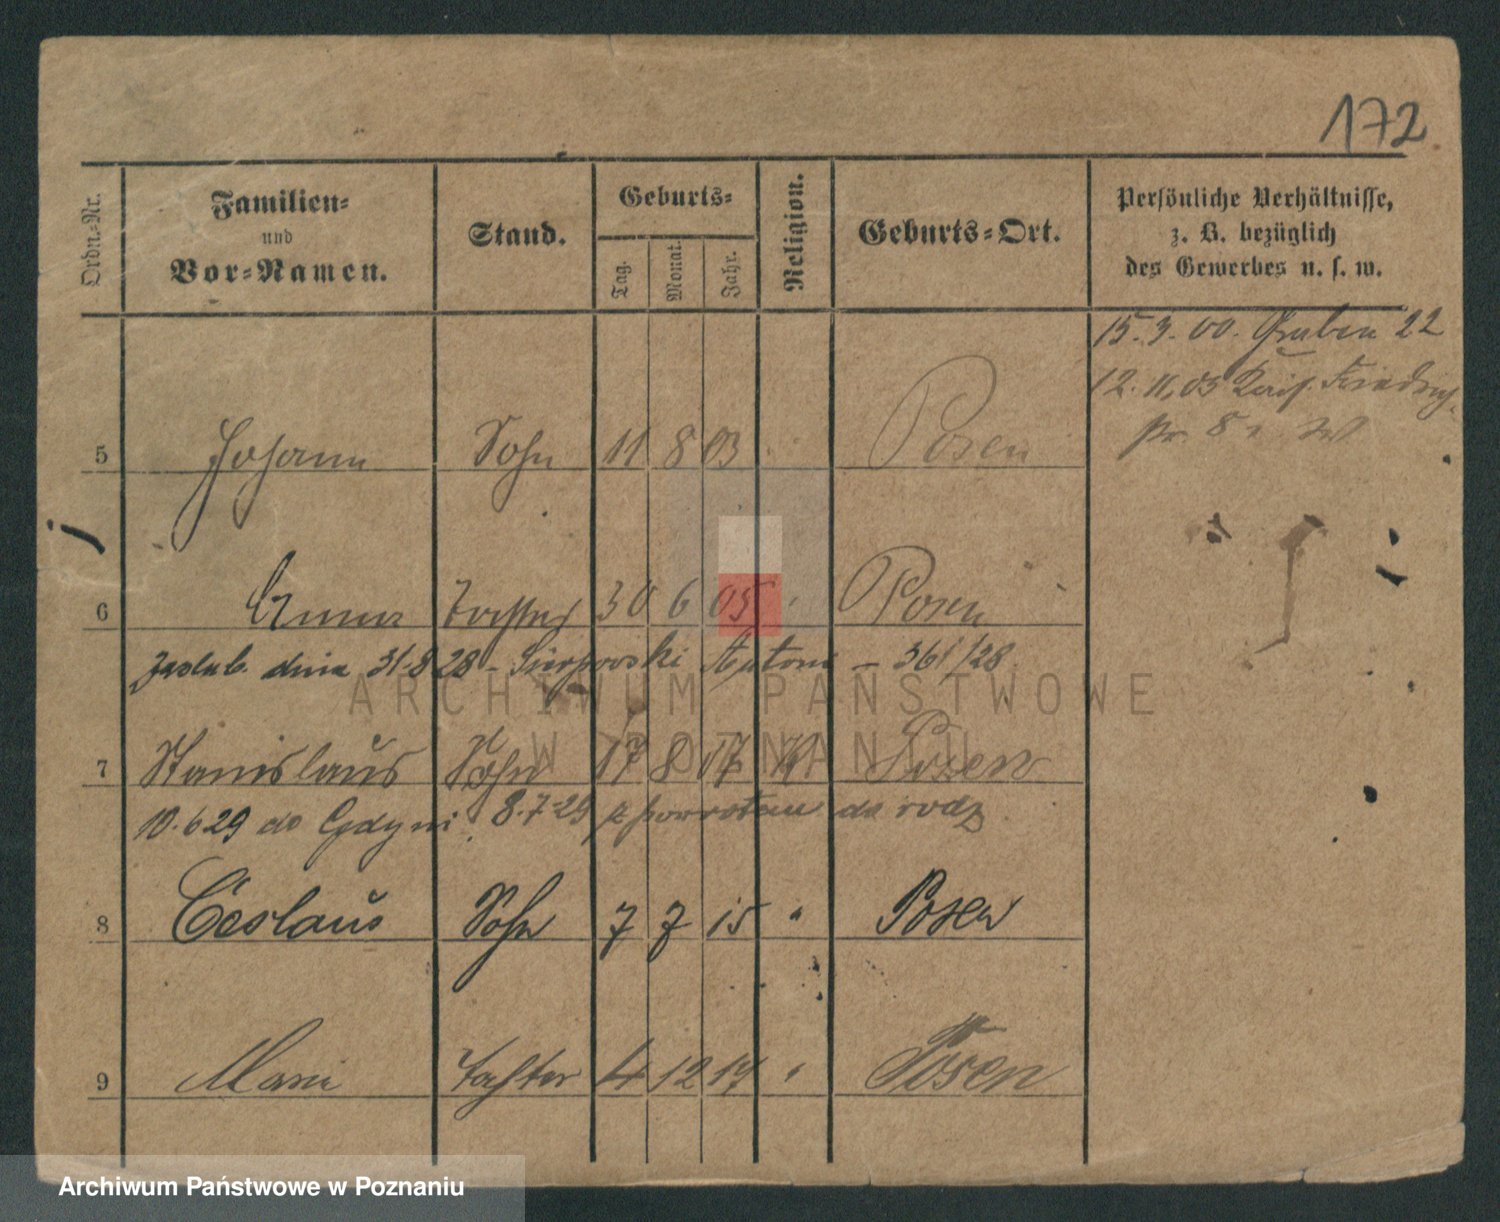 172
Ordn.-Nr.
Familien-
und
Vor-Namen.
Stand.
Geburts-
Tag.
Monat.
Jahr.
Religion.
Geburts-Ort.
Persönliche Verhältnisse,
z. B. bezüglich
des Gewerbes u. s. w.
15. 3. 00. Gruben 22
12. 11. 05 Friedrich
5 Johann Sohn 11 8 03 Posen
6 Anna Tochter 30 6 05 Posen
zaślub. dnia 31.8 28 - Antoni - 361/28
7 Stanislaus Sohn 17 8 Posen
10.6 29 do Gdyni 8.7-29 z powrotem do rodz
8 Ceslaus Sohn 7 7 15 " Posen
9 Maria Tochter 4 12 17 " Posen
ARCHIWUM PAŃSTWOWE
W POZNANIU
Archiwum Państwowe w Poznaniu